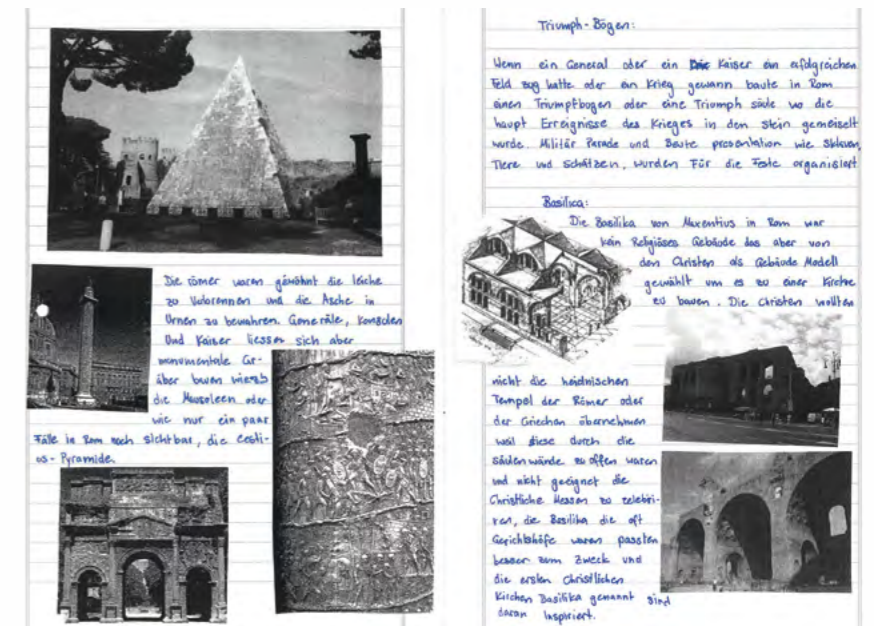 Die römer waren gewöhnt die leiche
zu verbrennen und die Asche in
Urnen zu bewahren. Generäle, Konsolen
Und Kaiser liessen sich aber
monumentale Gr-
äber bauen
die Mausoleen oder
wie nur ein paar
Fälle in Rom noch sichtbar, die cesti-
us-Pyramide.
Triumph-Bögen:
Wenn ein General oder ein Kaiser ein erfolgreichen
Feld zug hatte oder ein Krieg gewann baute in Rom
einen Triumpfbogen oder eine Triumph säule wo die
haupt Erreignisse des Krieges in den stein gemeiselt
wurde. Militär Parade und Beute presentation wie sklaven,
Tiere und schätzen, wurden Für die Feste organisiert
Basilica:
Die Basilika von Maxentius in Rom war
kein Religiöses Gebäude das aber von
den Christen als Gebäude Modell
gewählt um es zu einer Kirche
zu bauen. Die Christen wollten
nicht die heidnischen
Tempel der Römer oder
der Griechen übernehmen
weil diese durch die
säulen wände zu offen waren
und nicht geeignet die
Christliche Messen zu zelebri-
ren, die Basilika die oft
Gerichtshöfe waren passten
besser zum Zweck und
die ersten christlichen
Kirchen Basilika genannt sind
daran inspiriert.